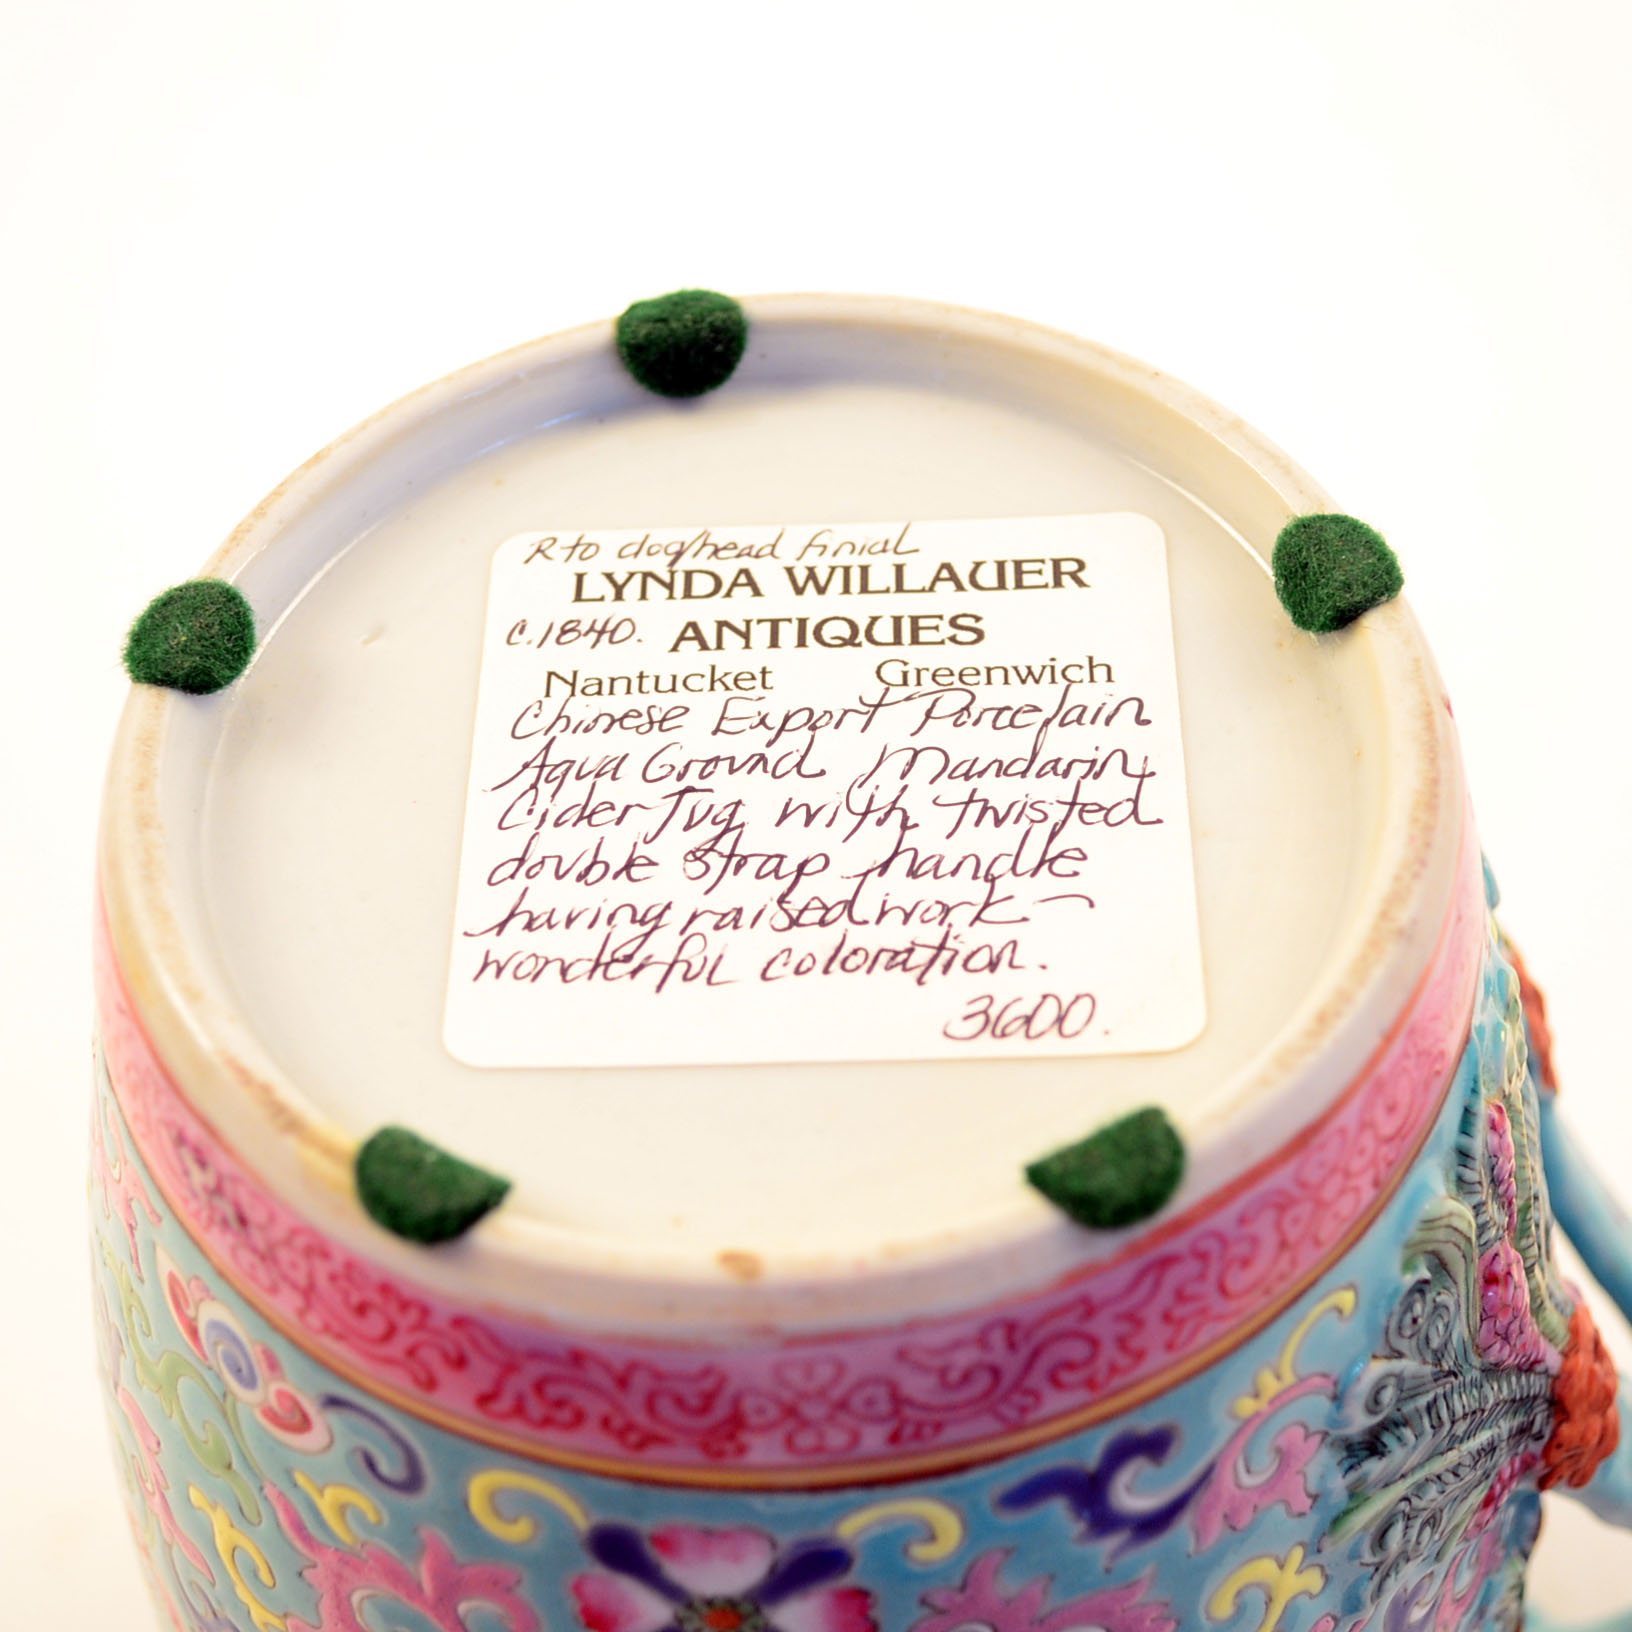 R to dog/head finial
LYNDA WILLAUER
c.1840. ANTIQUES
Nantucket Greenwich
Chinese Export Porcelain
Aqua Ground Mandarin
Cider Jug with twisted
double strap handle
having raised work -
wonderful coloration.
3600.